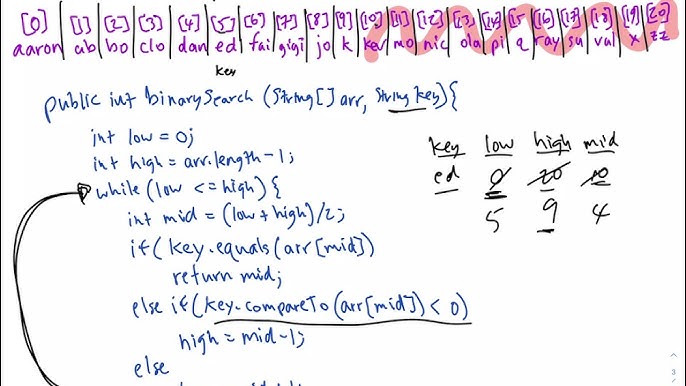 [0] [1] [2] [3] [4] [5] [6] [7] [8] [9] [10] [11] [12] [13] [14] [15] [16] [17] [18] [19] [20]
aaron ab bo clo dan ed fai gigi jo k kev mo nic ola pi q ray su val x zz
key
public int binarySearch (String[] arr, String key){
int low = 0;
int high = arr.length-1;
while (low <= high) {
int mid = (low + high)/2;
if( key.equals(arr[mid])
return mid;
else if( key.compareTo(arr[mid]) < 0)
high = mid-1;
else
key low high mid
ed 0 20 10
5 9 4
3